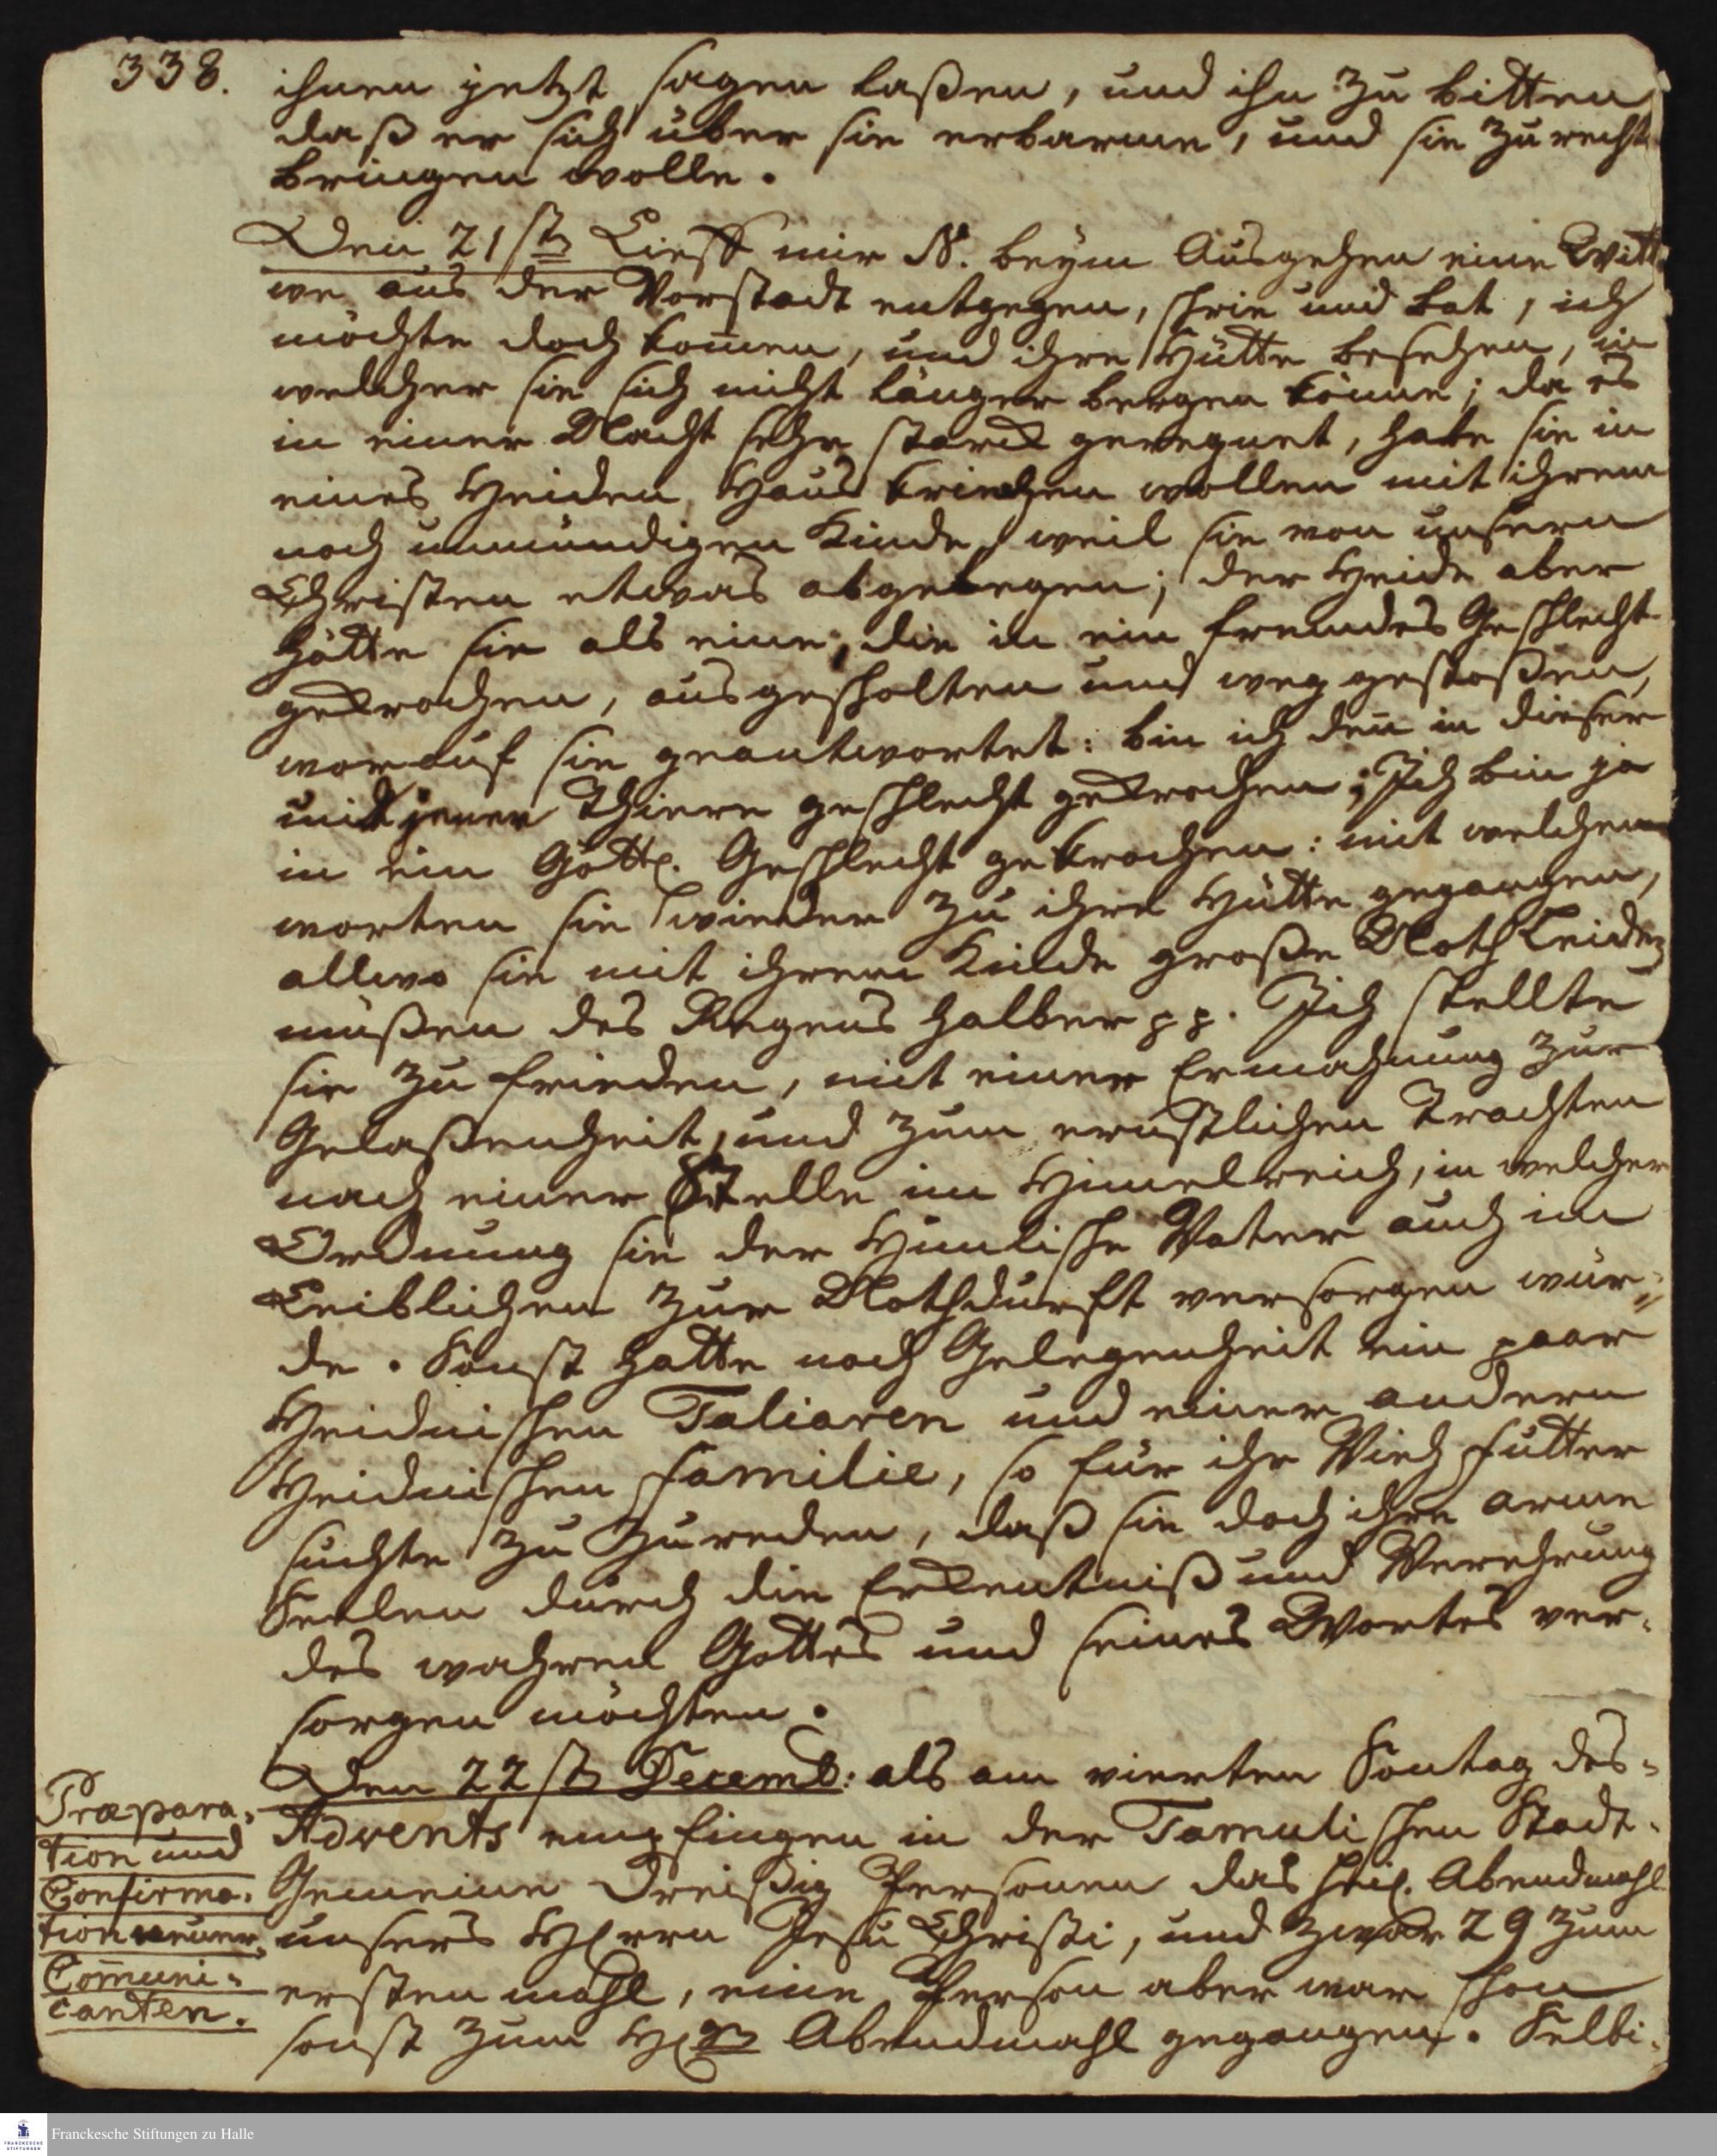 338.
ihnen jetzt sagen laßen, und ihn zu bitten
daß er sich über sie erbarme, und sie zu recht
bringen wolle.
Den 21sten Lieff mir N. beym Ausgehen eine Witt-
we aus der Vorstadt entgegen, schrie und bat, ich
möchte doch kom̄en, und ihre Hütte besehen, in
welcher sie sich nicht länger bergen könne; da es
in einer Nacht sehr starck geregnet, habe sie in
eines Heiden Haus kriechen wollen mit ihrem
noch unmündigen Kinde, weil sie von unsern
Christen etwas abgelegen; der Heide aber
hätte sie als eine, die in ein fremdes Geschlecht
gekrochen, ausgescholten und weg gestoßen,
worauf sie geantwortet: bin ich den̄ in dieser
und jener Thiere geschlecht gekrochen; Ich bin ja
in ein Göttl. Geschlecht gekrochen: mit welchen
worten sie wieder zu ihre Hütte gegangen,
allwo sie mit ihrem Kinde große Noth Leiden
müßen des Regens halber pp. Ich stellte
sie zu frieden, mit einer Ermahnung zur
Gelaßenheit, und zum ernstlichen Trachten
nach einer Stelle im Him̄elreich, in welcher
Ordnung sie der Him̄lische Vater auch im
Leiblichen zur Nothdurfft versorgen wür-
de. Sonst hatte noch Gelegenheit ein paar
Heidnischen Taliaren und einer andern
Heidnischen Familie, so für ihr Vieh Futter
suchte zu zureden, daß sie doch ihre arme
Seelen durch die Erkentniß und Verehrung
des wahren Gottes und seines Wortes ver-
sorgen möchten.
Den 22sten Decemb: als am vierten Sontag des-
Advents empfingen in der Tamulischen Stadt-
Gemeine Dreißig Personen das heil. Abendmahl
unsers HErrn Jesu Christi, und zwar 29 zum
ersten mahl, eine Person aber war schon
sonst zum Hlgen Abendmahl gegangen. Selbi-
Præpara-
tion und
Confirma-
tion neuer
Com̄uni-
canten.
Franckesche Stiftungen zu Halle
FRANCKESCHE
STIFTUNGEN